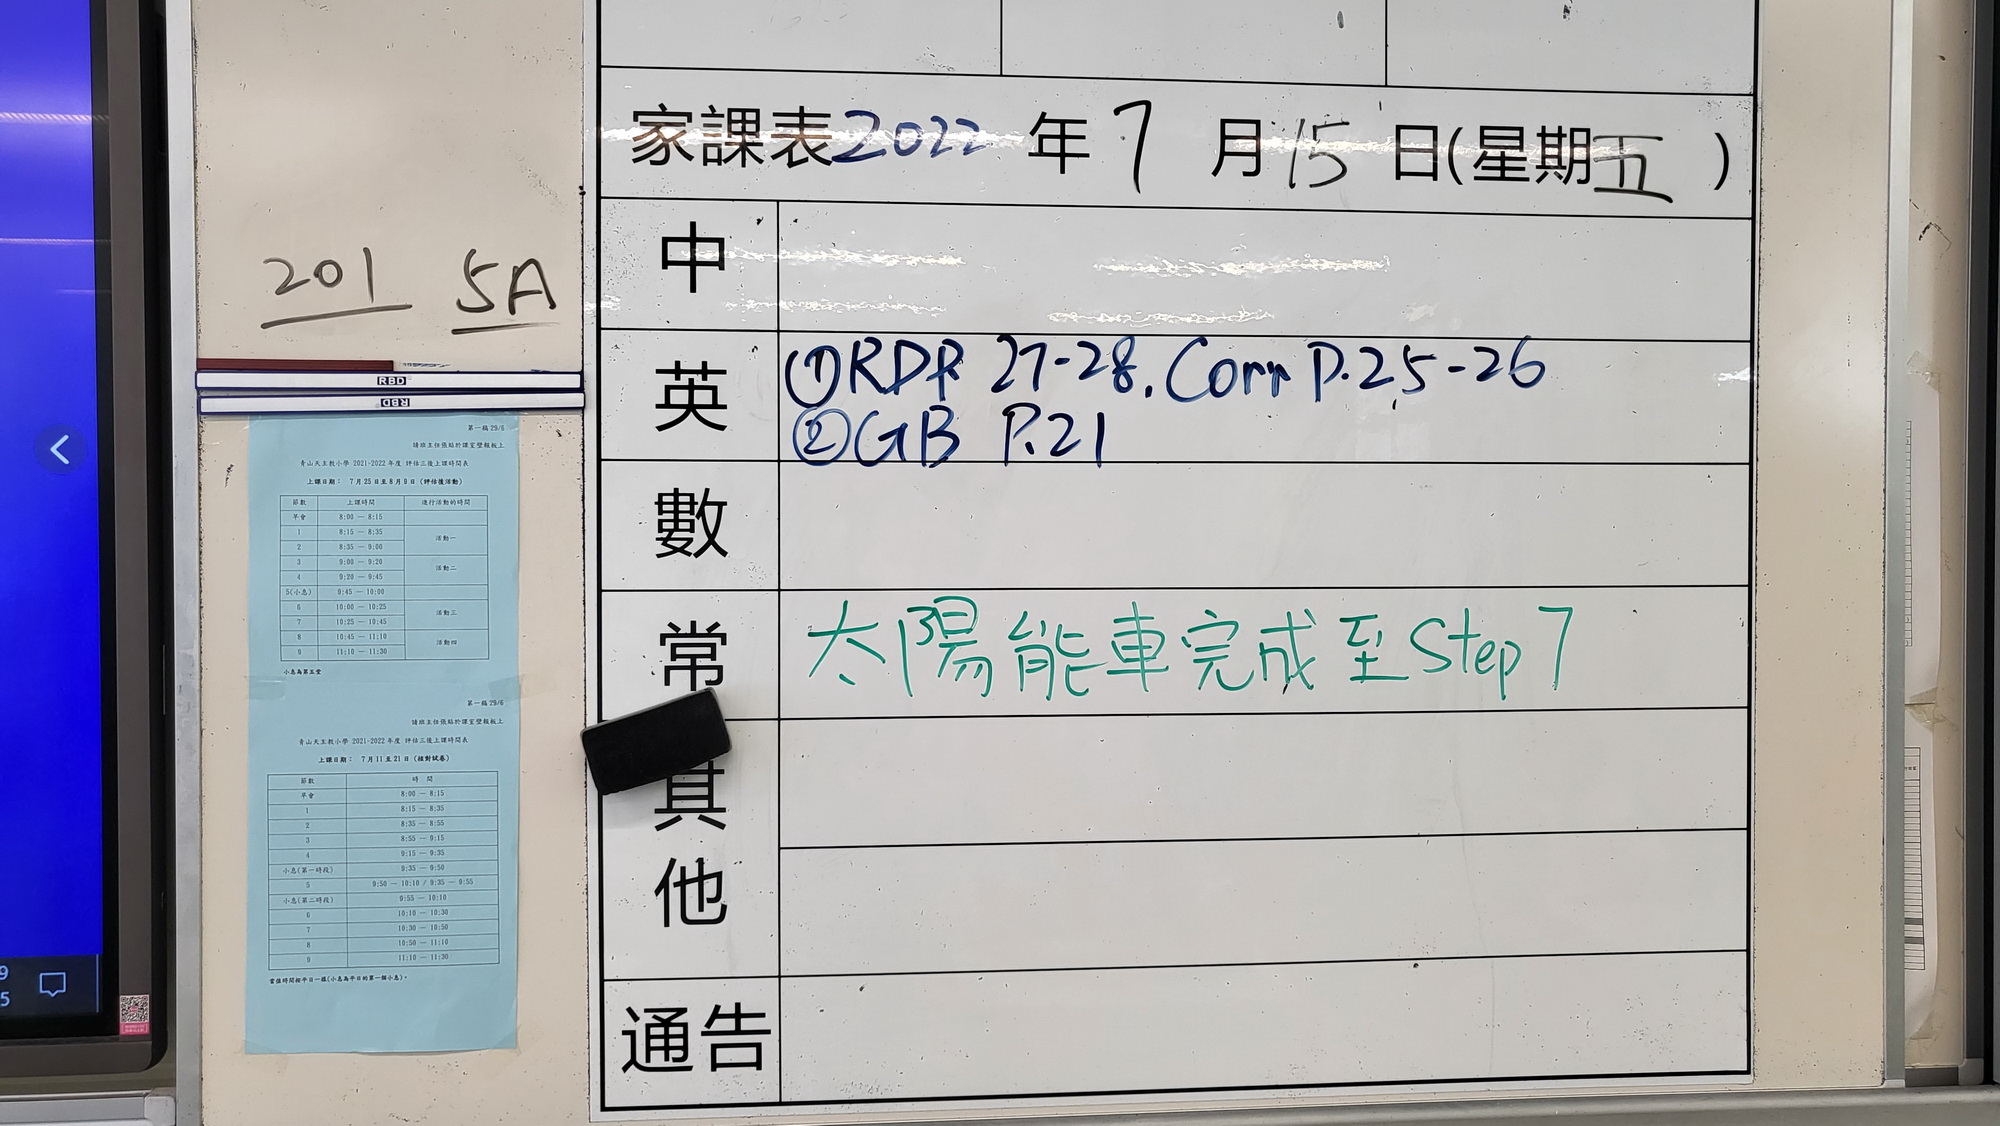 家課表2022 年 7 月 15 日(星期五 )
中
英
①RDP 27-28. Corr P.25-26
②GB P.21
數
常
太陽能車完成至Step 7
其
他
通告
201 5A
RBD
RBD
第一稿 29/6
請班主任張貼於課室壁報板上
青山天主教小學 2021-2022 年度 評估三後上課時間表
上課日期： 7 月 25 日至 8 月 9 日 (評估後活動)
節數 上課時間 進行活動的時間
早會 8:00 — 8:15
1 8:15 — 8:35 活動一
2 8:35 — 9:00
3 9:00 — 9:20 活動二
4 9:20 — 9:45
5(小息) 9:45 — 10:00
6 10:00 — 10:25 活動三
7 10:25 — 10:45
8 10:45 — 11:10 活動四
9 11:10 — 11:30
小息為第五堂
第一稿 29/6
請班主任張貼於課室壁報板上
青山天主教小學 2021-2022 年度 評估三後上課時間表
上課日期： 7 月 11 至 21 日 (核對試卷)
節數 時 間
早會 8:00 — 8:15
1 8:15 — 8:35
2 8:35 — 8:55
3 8:55 — 9:15
4 9:15 — 9:35
小息(第一時段) 9:35 — 9:50
5 9:50 — 10:10 / 9:35 — 9:55
小息(第二時段) 9:55 — 10:10
6 10:10 — 10:30
7 10:30 — 10:50
8 10:50 — 11:10
9 11:10 — 11:30
當值時間按平日一樣(小息為平日的第一個小息)。
9
5